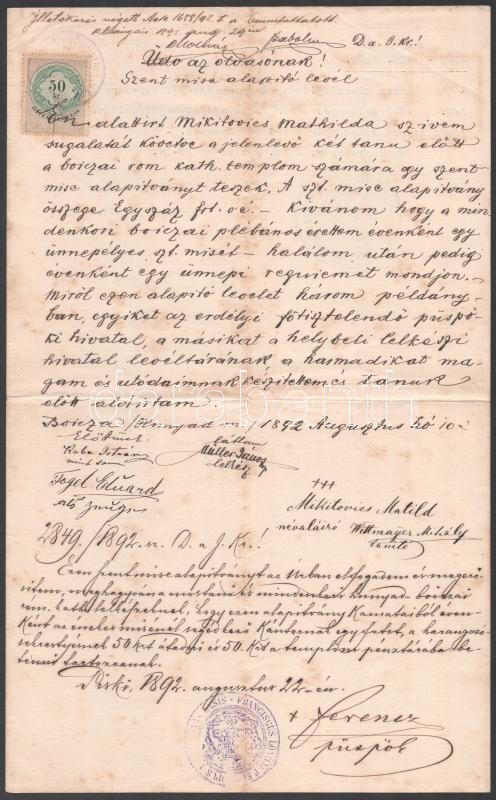 D. a. J. Kr.!
Üdv az olvasónak!
Szent mise alapitó levél
50
kr.
alattirt Mikitovics Mathilda szivem
sugalatát követve a jelenlevő két tanu előtt
a boiczai róm. kath. templom számára egy szent
mise alapitványt teszek. A szt. mise alapitvány
összege Egyszáz frt. o. é. – Kivánom hogy a min
denkori boiczai plébános érettem évenként egy
ünnepélyes szt. misét – halálom után pedig
évenként egy ünnepi requiemet mondjon. –
Miről ezen alapitó levelet három példány-
ban, egyiket az erdélyi főtisztelendő püspö-
ki hivatal, a másikat a helybeli lelkészi
hivatal levéltárának a harmadikat ma-
gam és utódaimnak készitettem és tanuk
előtt aláirtam.
Boicza /Hunyad m/ 1892 Augusztus hó 10-
Előttünk: láttam
Raba István Müller János
mint tanu lelkész
Fogel Eduard
als Zeuge
+++
Mikitovics Matild
névaláiró Wittmayer Mihály
tanitó
2849./1892. sz. D. a J. Kr.!
Ezen szent mise alapitványt az Úrban elfogadom és megerő-
sitem, meghagyván a mostani és mindenkori hunyad-boiczai
róm. kath. lelkésznek, hogy ezen alapitvány kamataiból éven-
ként az éneklő misénél segédkező kántornak egy frtot, a harangozó-
50 krt átadni és 50 krt a templom pénztárába be-
tenni tartozzanak.
Piski, 1892. augusztus 22-én.
+ Ferencz
püspök
FRANCISCUS